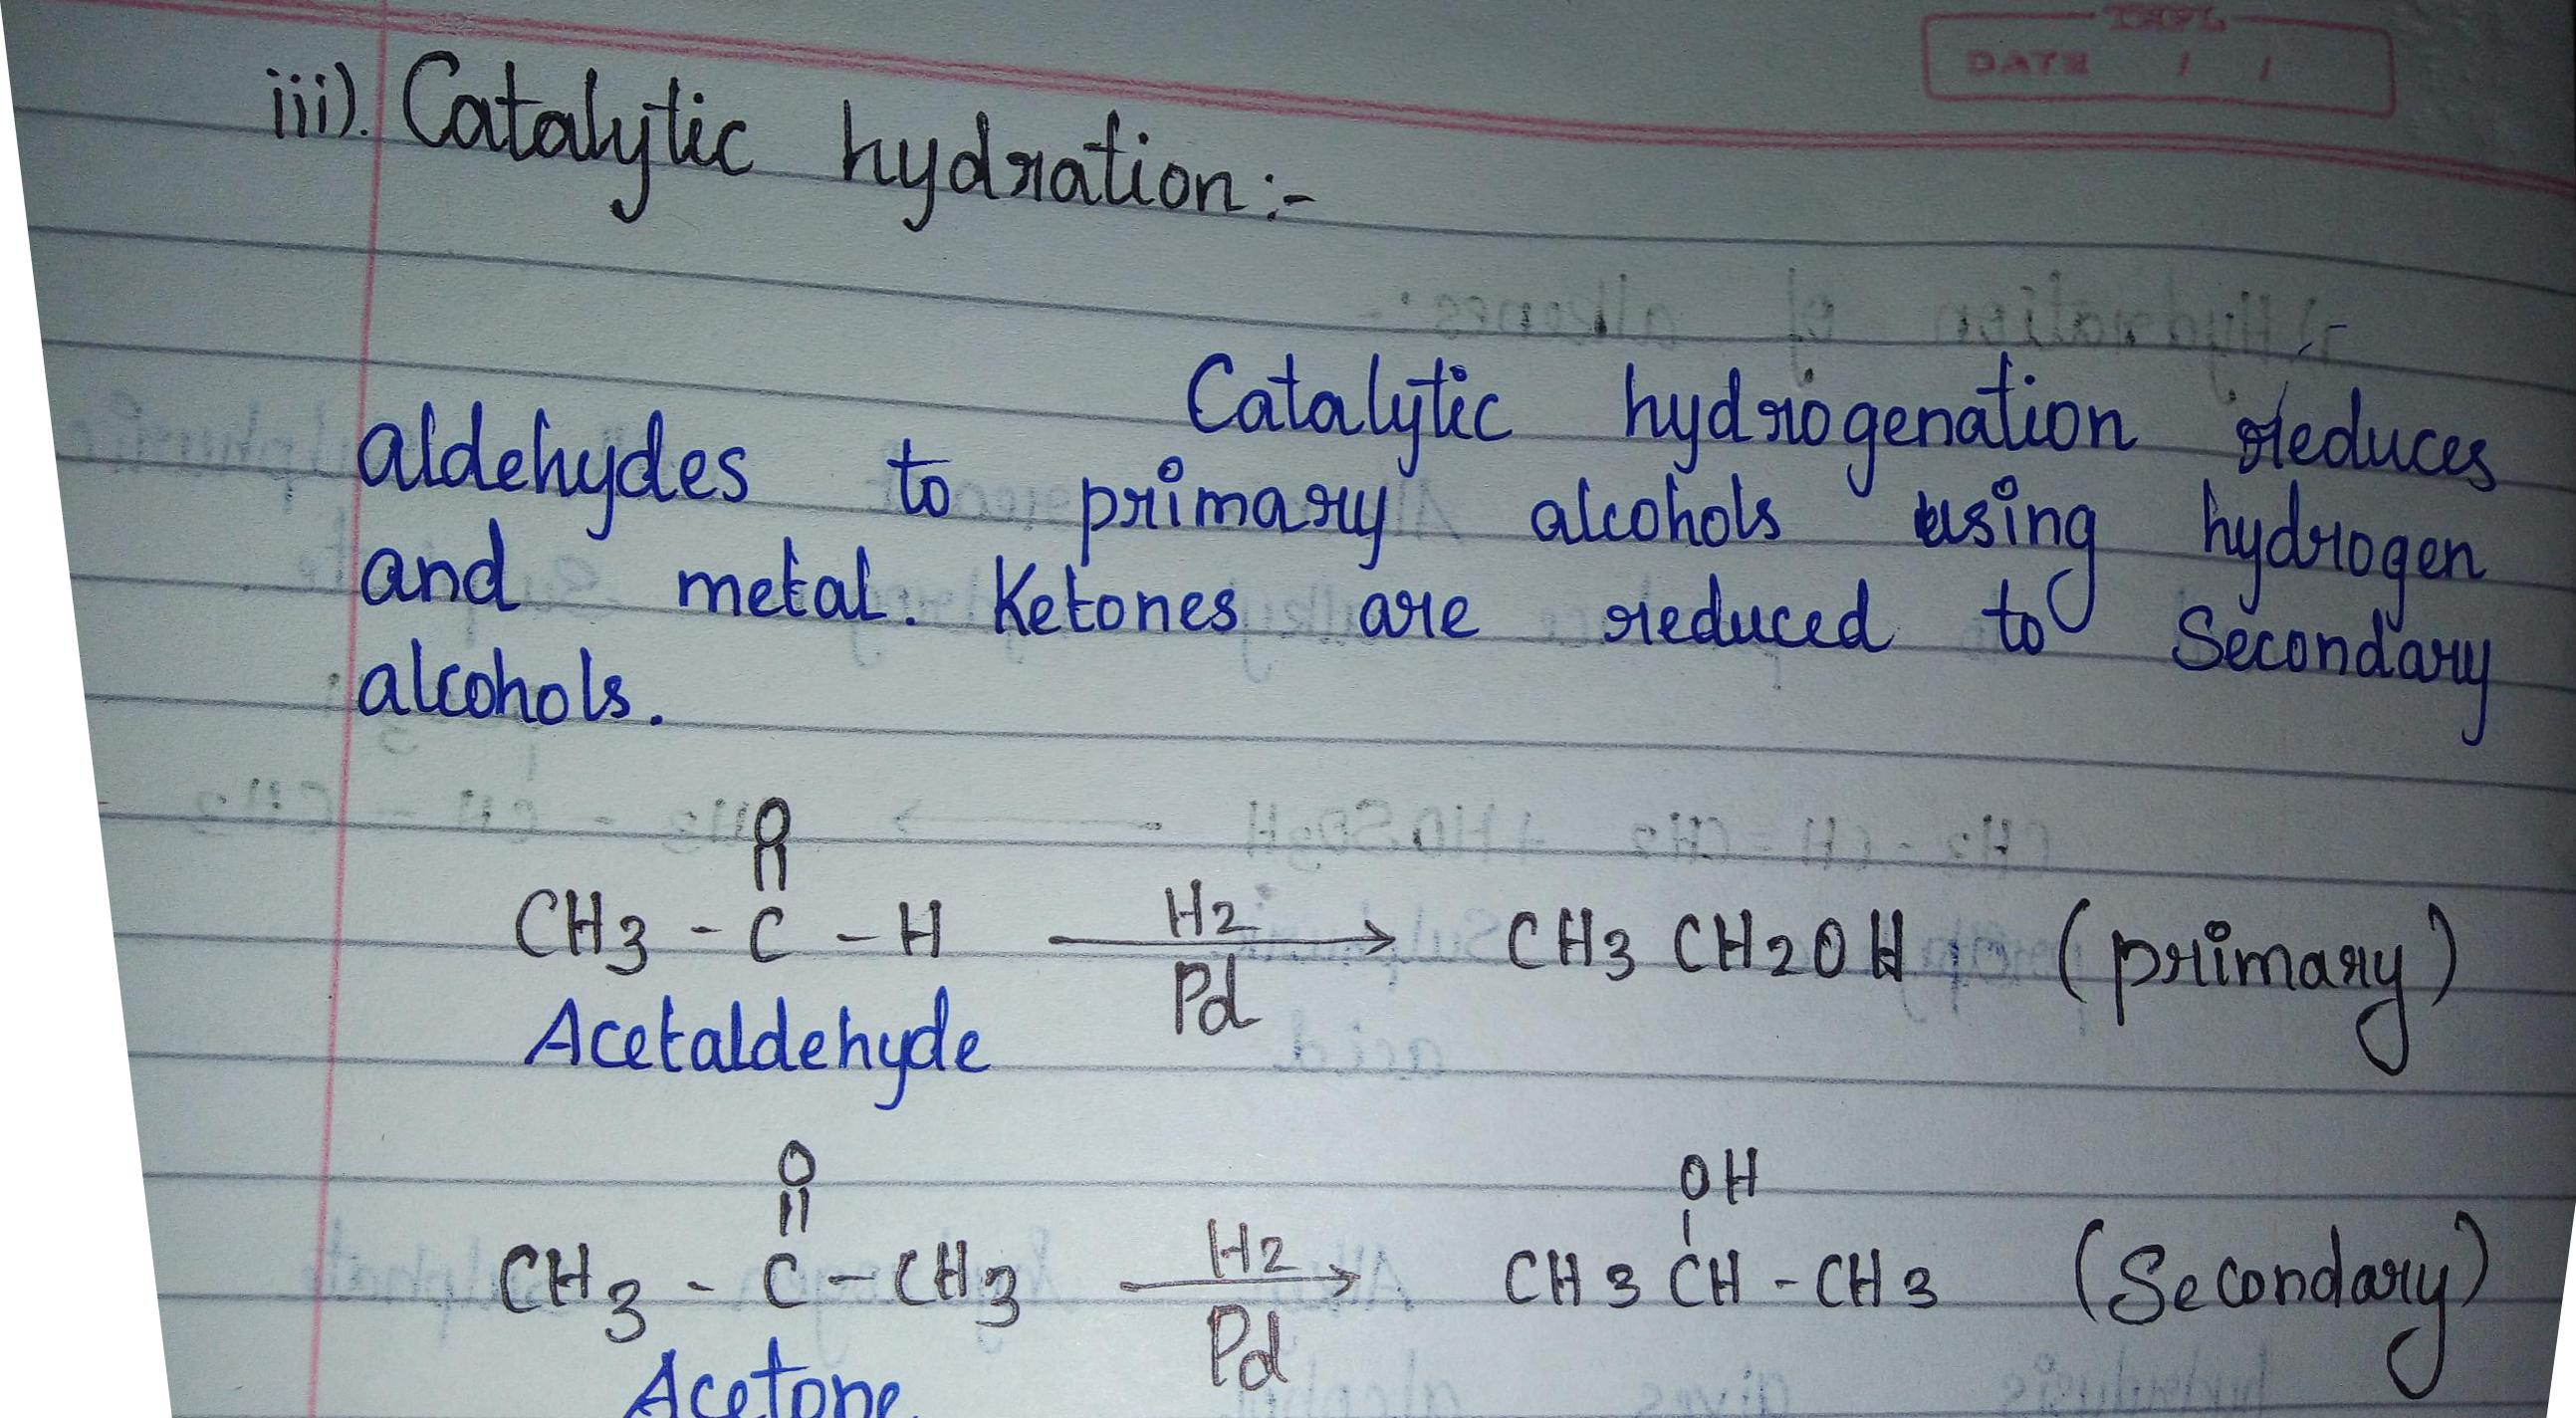 DATE / /
iii). Catalytic hydration:-
Catalytic hydrogenation reduces
aldehydes to primary alcohols using hydrogen
and metal. Ketones are reduced to Secondary
alcohols.
O
||
CH3 - C - H H2 Pd → CH3 CH2OH (primary)
Acetaldehyde
O
||
OH
|
CH3 - C - CH3 H2 Pd → CH3 CH - CH3 (Secondary)
Acetone